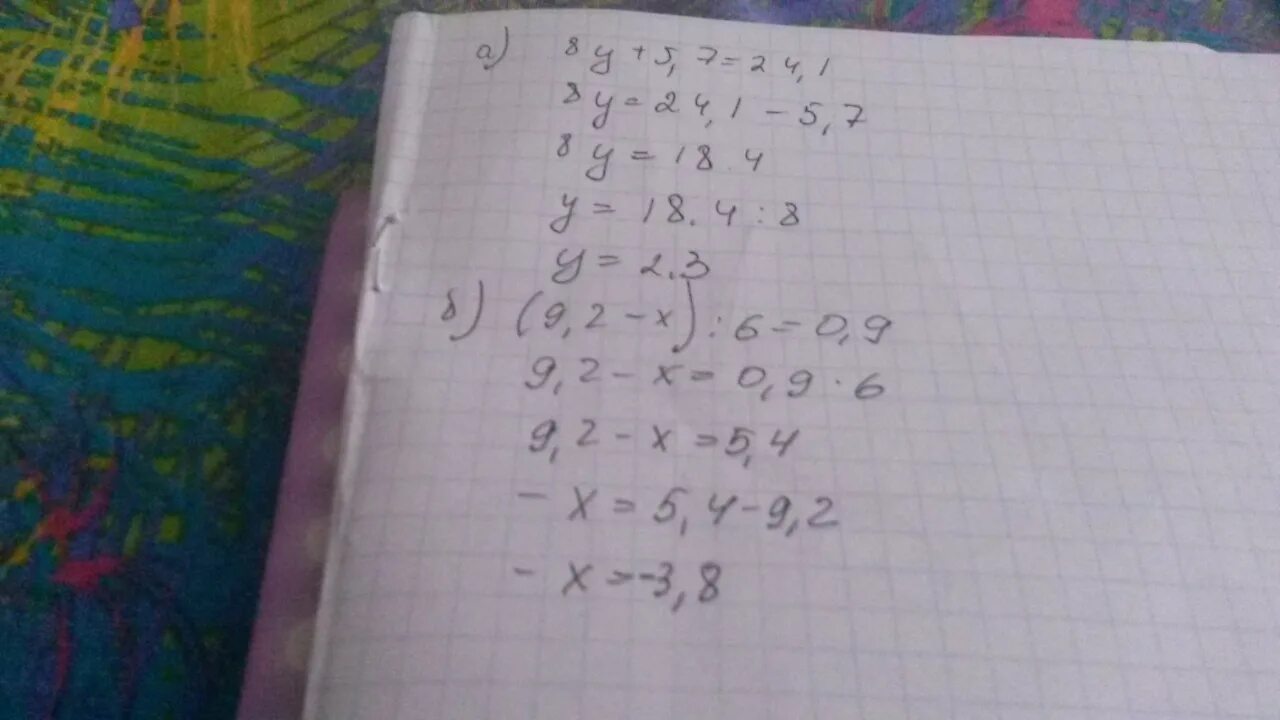 а) 8y+5,7=24,1
8y=24,1-5,7
8y=18.4
y=18.4:8
y=2.3
б) (9,2-x):6=0,9
9,2-x=0,9·6
9,2-x=5,4
-x=5,4-9,2
-x=-3,8